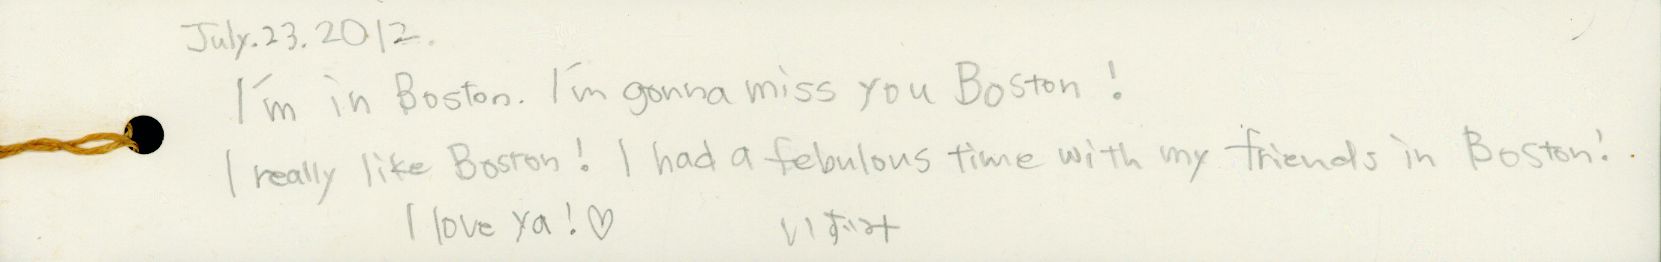 July.23.2012.
I'm in Boston. I'm gonna miss you Boston!
I really like Boston! I had a febulous time with my friends in Boston!
I love ya!♡ いずみ